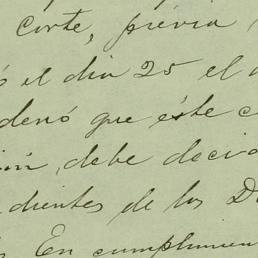 Corte, prévia
ó el dia 25 el
denó que éste
debe
dientes de los
En cumplimien